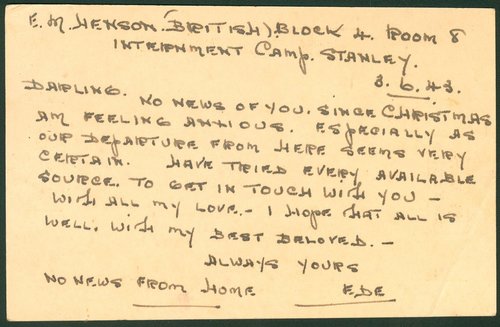 E. M. HENSON. (BRITISH) BLOCK 4. ROOM 8
INTERNMENT CAMP. STANLEY.
3.6.43.
DARLING. NO NEWS OF YOU. SINCE CHRISTMAS
AM FEELING ANXIOUS. ESPECIALLY AS
OUR DEPARTURE FROM HERE SEEMS VERY
CERTAIN. HAVE TRIED EVERY AVAILABLE
SOURCE. TO GET IN TOUCH WITH YOU —
WITH ALL MY LOVE. - I HOPE THAT ALL IS
WELL. WITH MY BEST BELOVED. —
ALWAYS YOURS
NO NEWS FROM HOME EDE